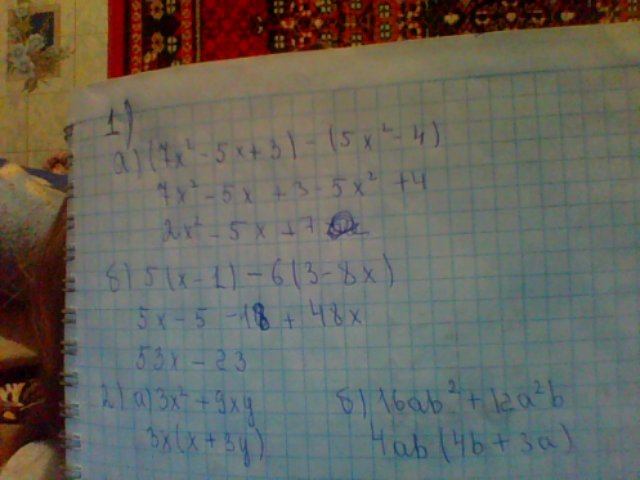 1)
а) (7x² - 5x + 3) - (5x² - 4)
7x² - 5x + 3 - 5x² + 4
2x² - 5x + 7
б) 5(x - 1) - 6(3 - 8x)
5x - 5 - 18 + 48x
53x - 23
2) а) 3x² + 9xy
3x(x + 3y)
б) 16ab² + 12a²b
4ab(4b + 3a)